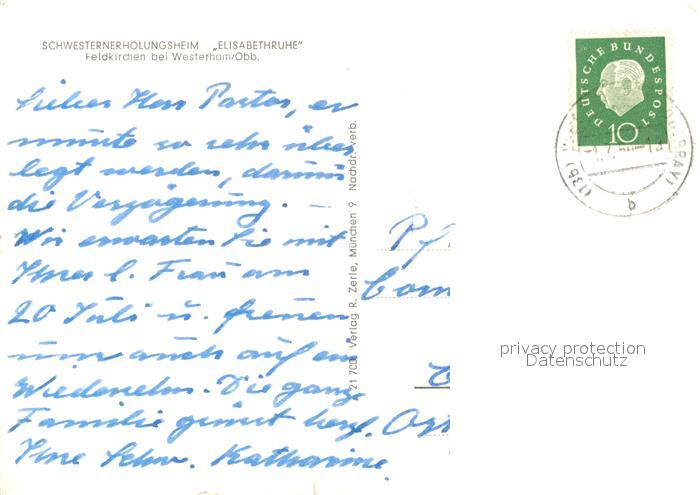 SCHWESTERNERHOLUNGSHEIM „ELISABETHRUHE"
Feldkirchen bei Westerham/Obb.
Lieber Herr Pastor, es
musste so sehr über
legt werden, darum
die Verzögerung. -
Wir erwarten Sie mit
Ihrer l. Frau am
20 Juli u. freuen
uns auch auf ein
Wiedersehn. Die ganze
Familie grüsst herzl.
Ihre Schw. Katharina.
21 700 Verlag R. Zerle, München 9 Nachdr. verb.
DEUTSCHE BUNDESPOST
10
(13b)
BRAY)
b
Pf
privacy protection
Datenschutz